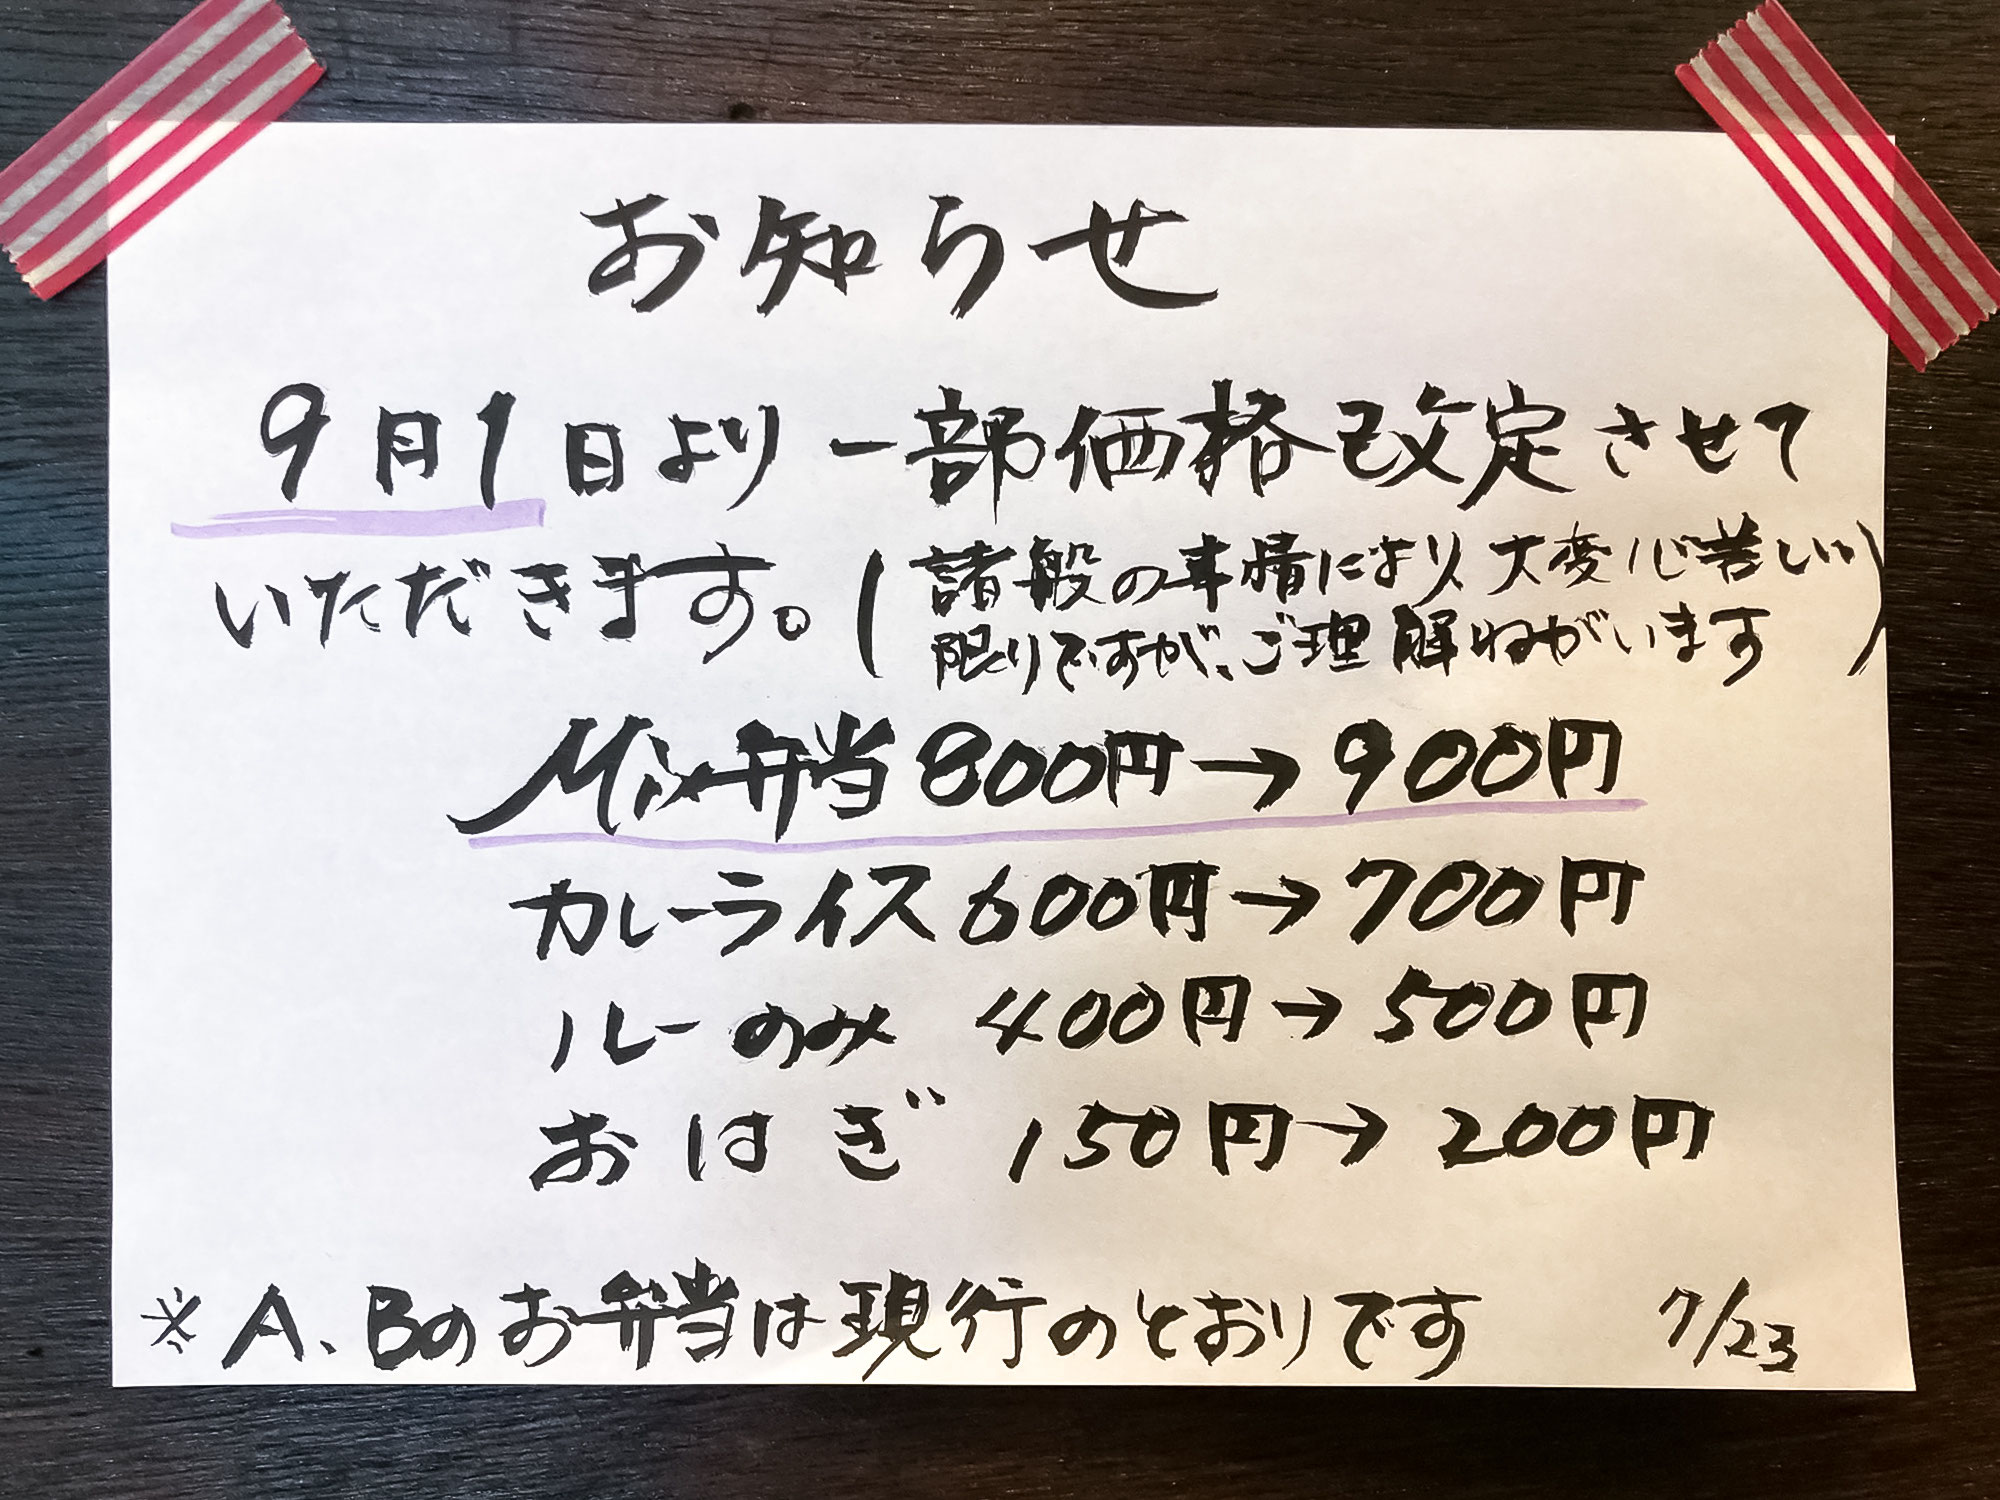 お知らせ
9月1日より一部価格改定させて
いただきます。(諸般の事情により、大変心苦しい
限りですが、ご理解ねがいます)
Mix弁当800円→900円
カレーライス600円→700円
ルーのみ 400円→500円
おはぎ 150円→200円
※A、Bのお弁当は現行のとおりです 7/23